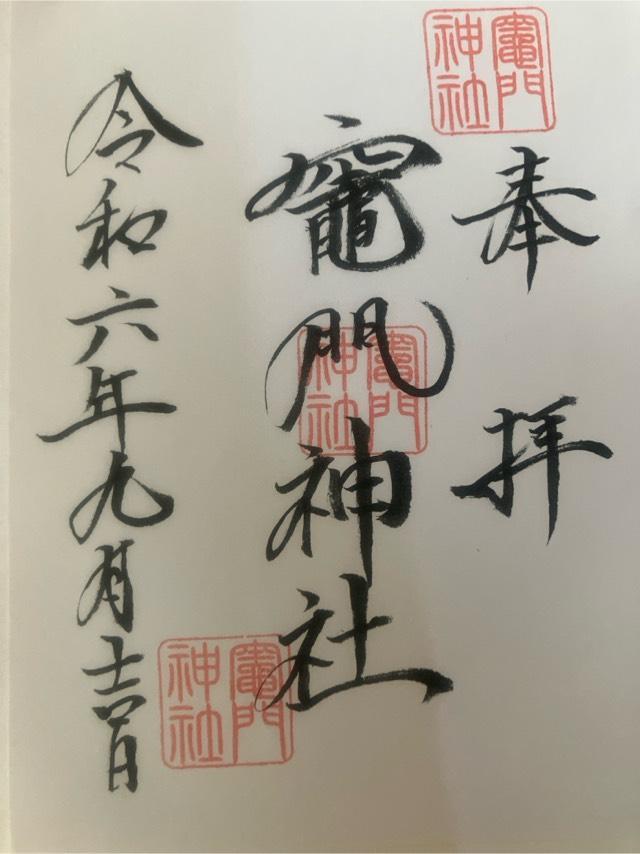 奉拝
竈門
神社
竈門神社
竈門
神社
令和六年九月日
竈門
神社